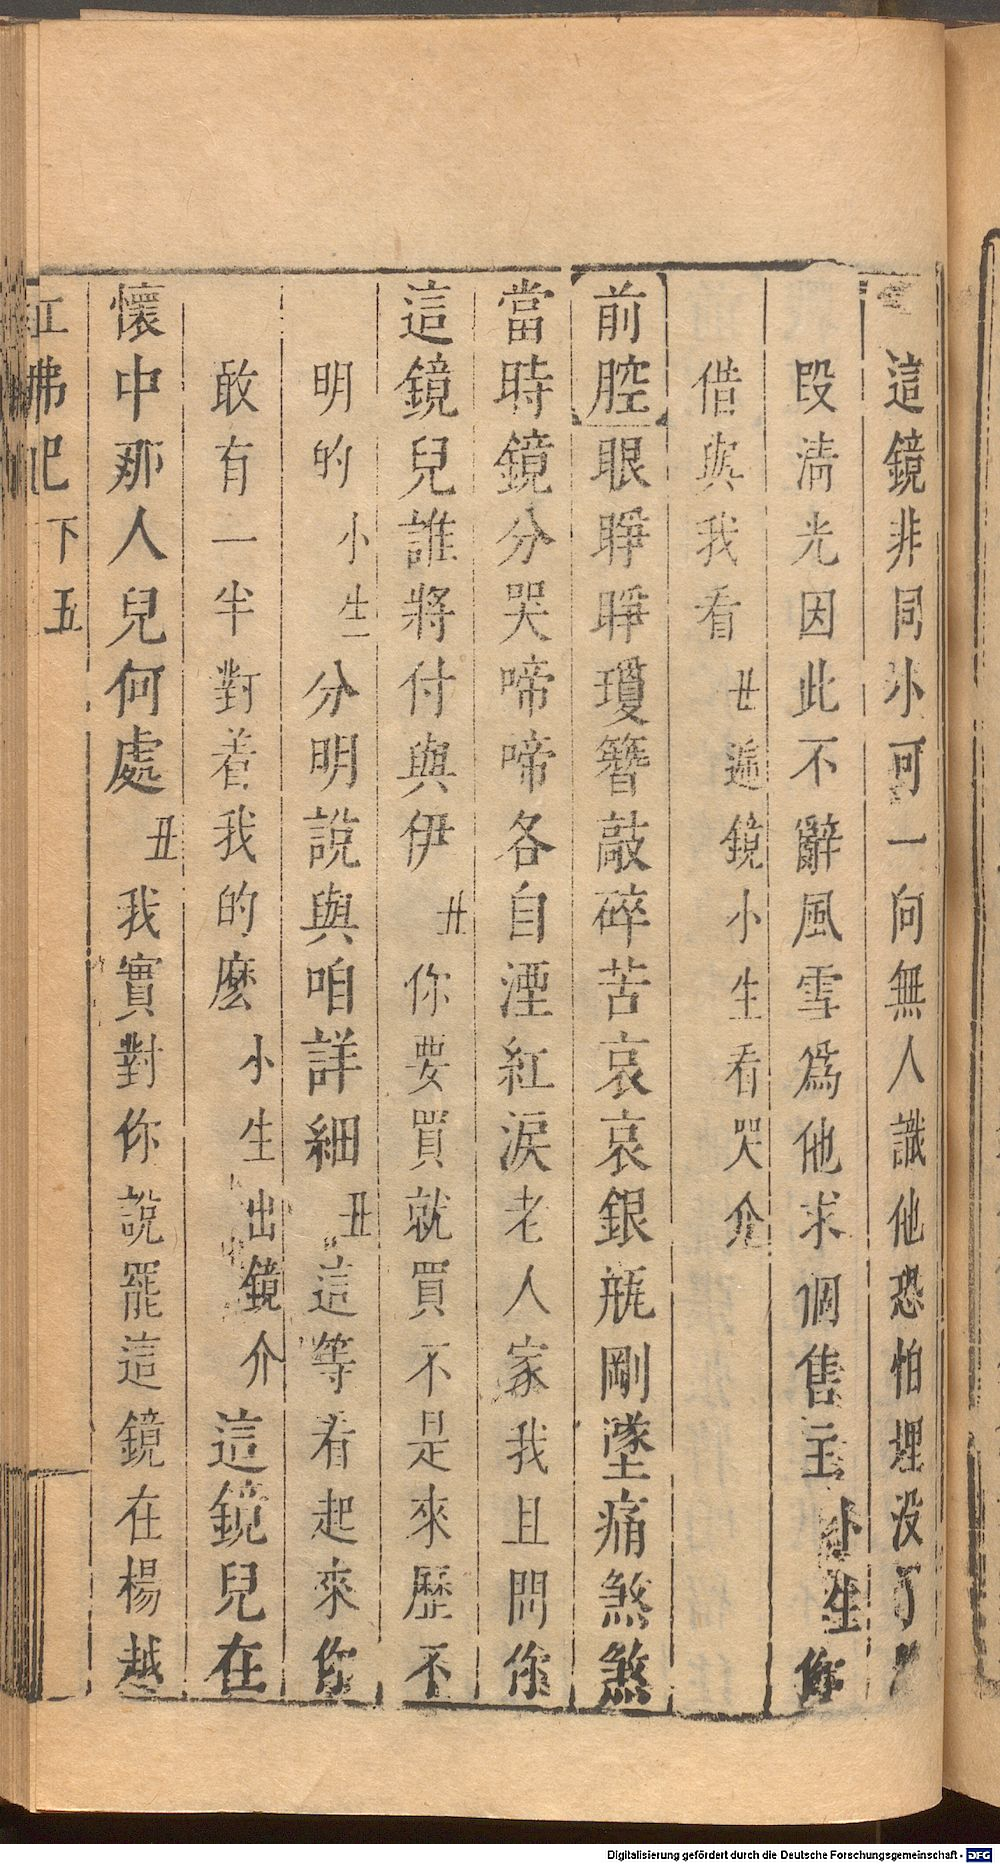 這鏡非同小可一向無人識他恐怕埋没了
段清光因此不辭風雪爲他求個售主小生你
借與我看丑遞鏡小生看哭介
前腔眼睜睜瓊簪敲碎苦哀哀銀瓶剛墜痛煞煞
當時鏡分哭啼啼各自湮紅淚老人家我且問你
這鏡兒誰將付與伊丑你要買就買不是來歷不
明的小生分明說與咱詳細丑這等看起來你
敢有一半對着我的麽小生出鏡介這鏡兒在
懷中那人兒何處丑我實對你說罷這鏡在楊越
紅弗記下五
Digitalisierung gefördert durch die Deutsche Forschungsgemeinschaft - DFG